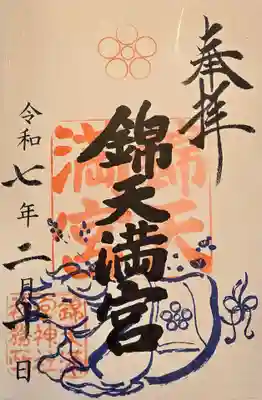 奉拝
錦天満宮
錦天満宮
令和七年二月十一日